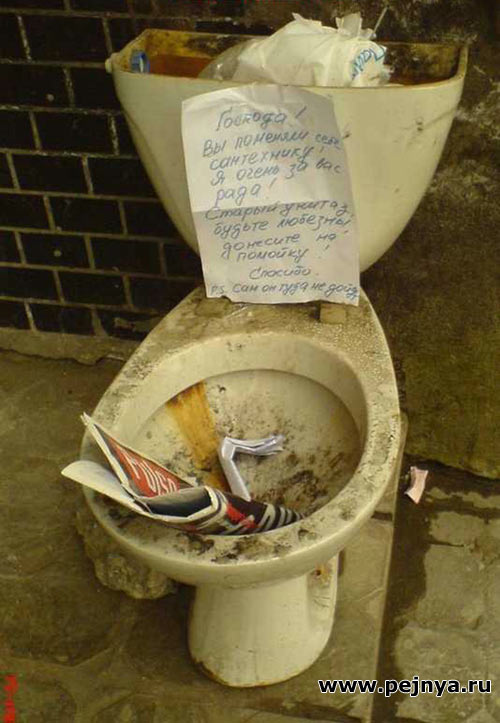 Господа!
Вы поменяли себе
сантехнику!
Я очень за вас
рада!
Старый унитаз
будьте любезны
донесите на
помойку!
Спасибо.
P.S. Сам он туда не дойдёт
www.pejnya.ru